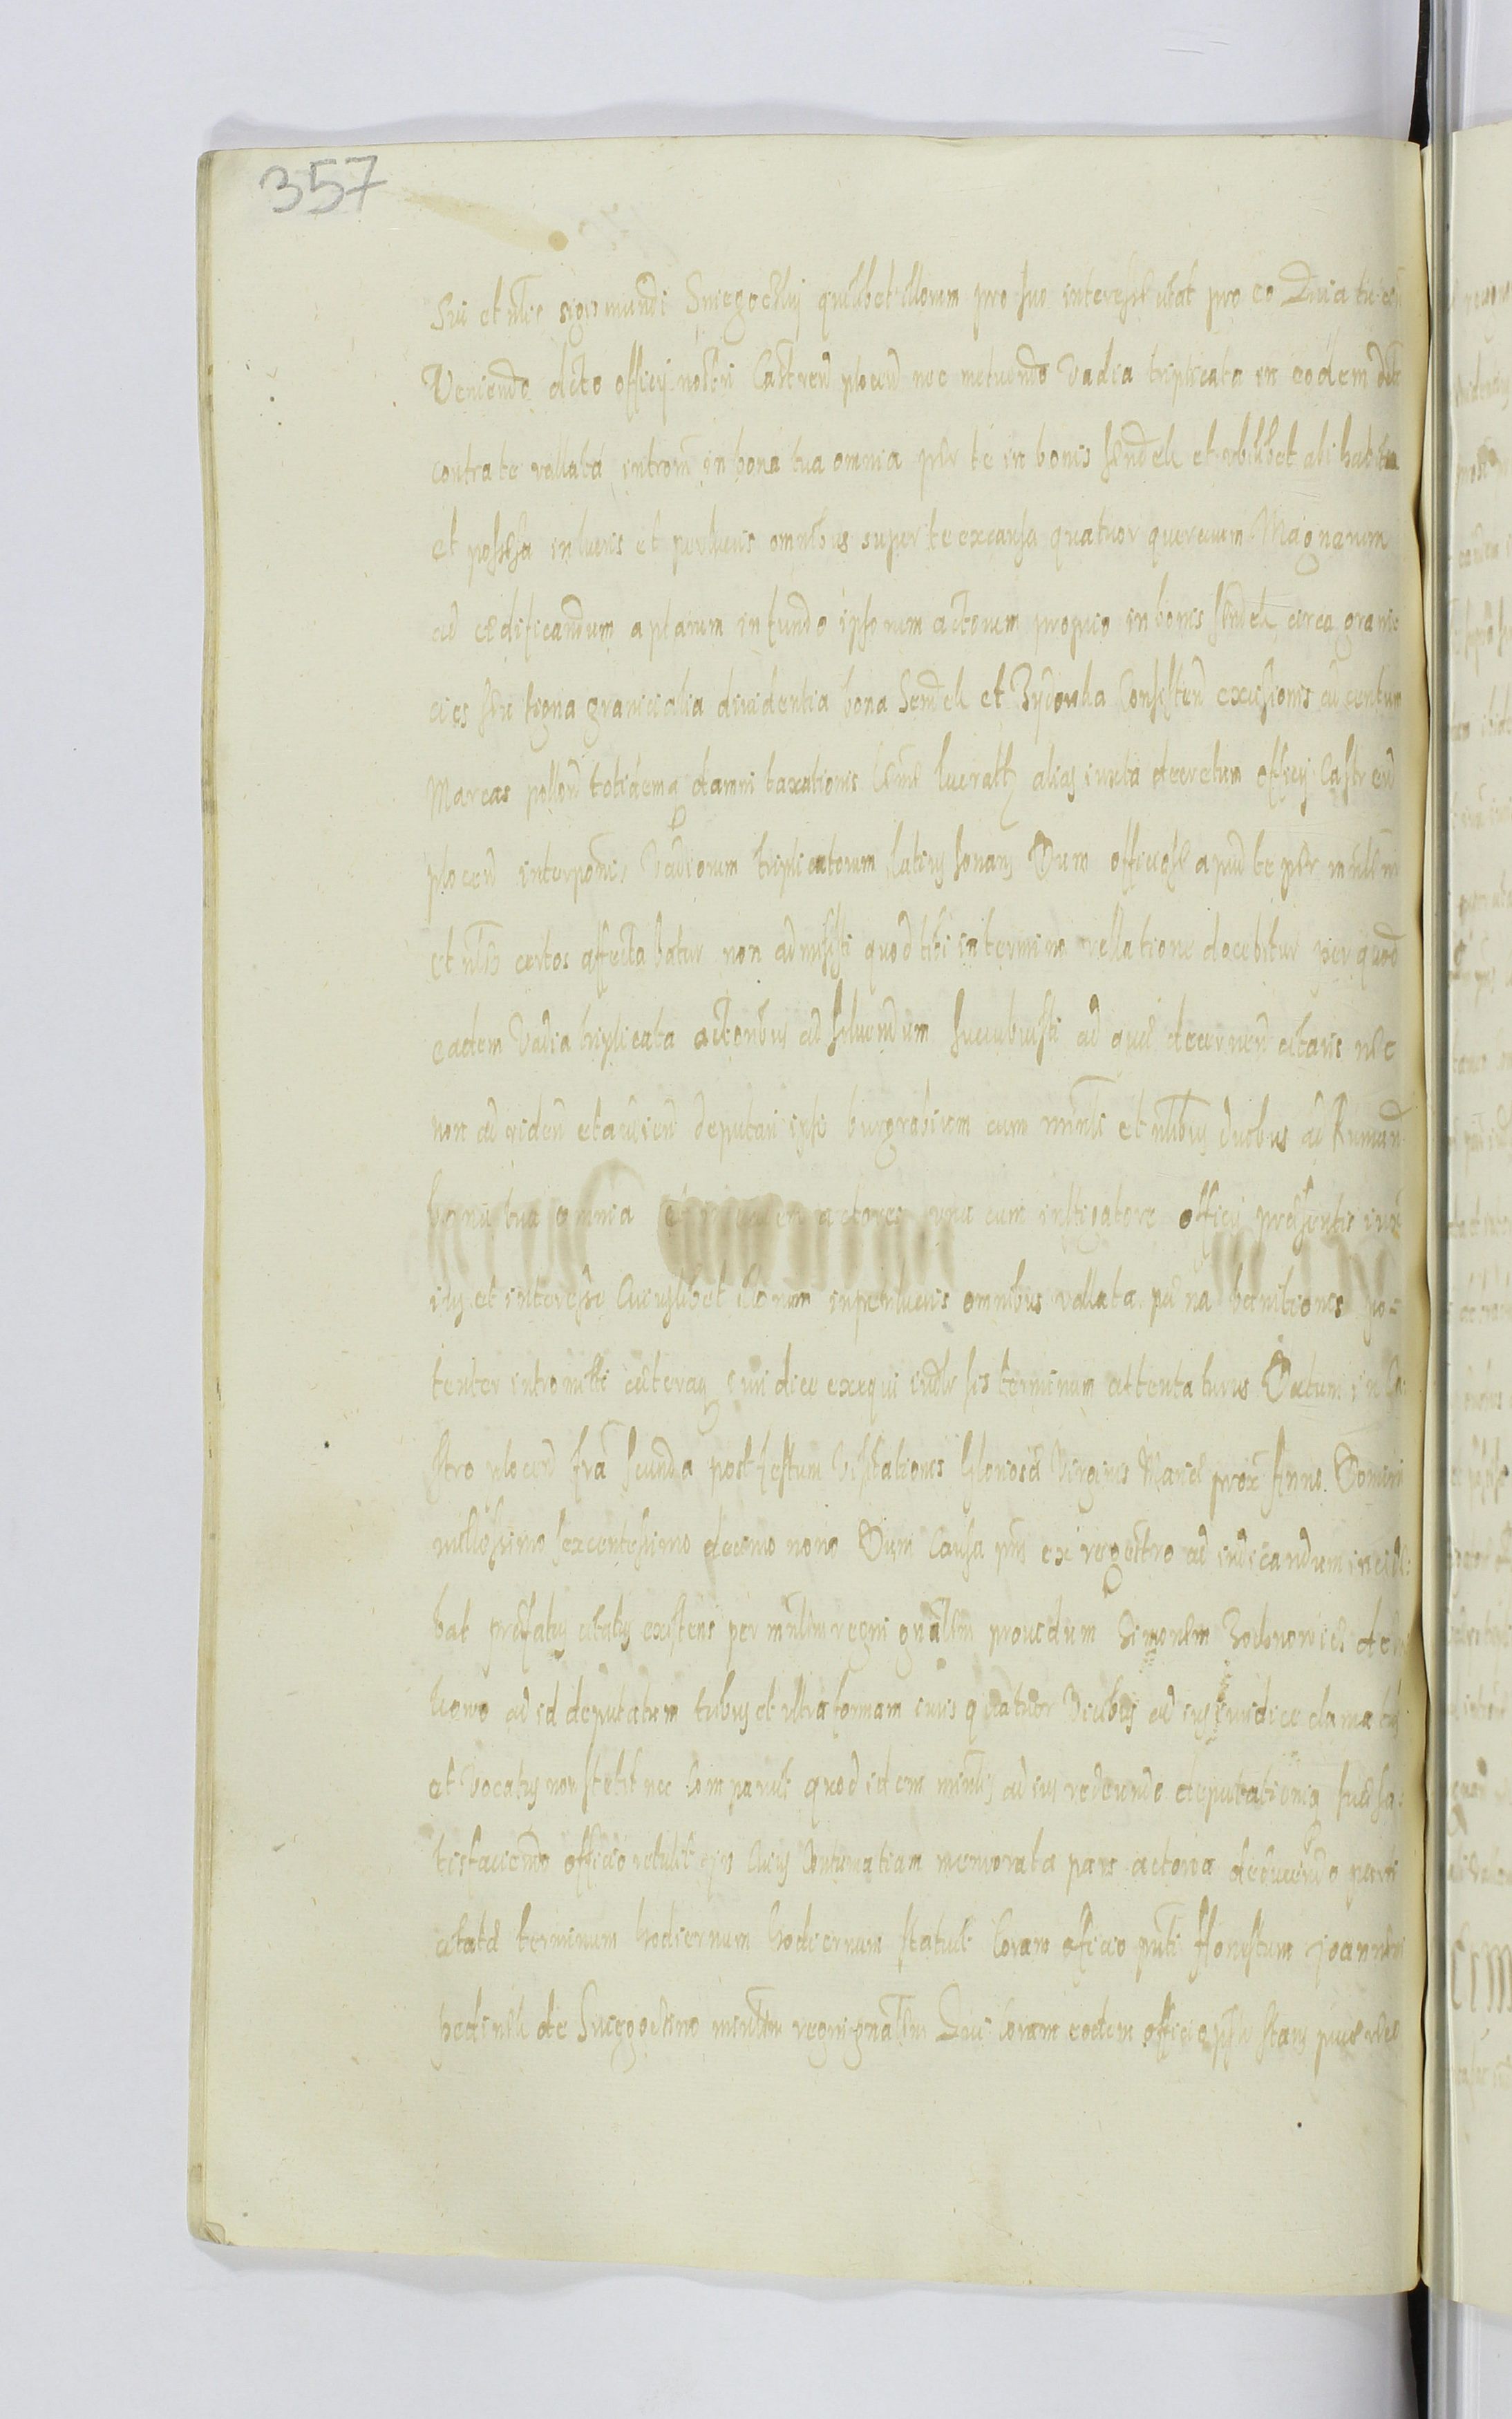 357
Sui et nlis sigismundi Sniegoczkij quilibet illorum pro suo interesse citat pro eo Quia tu
Veniendo dcto officij nostri Castren plocen nec metuendo Vadia triplicata in eodem
contra te vallata introm in bona tua omnia per te in bonis Sendek et ubilibet alibi habita
et possessa inlucris et perlucris omnibus super te excausa quatuor quercuum Magnarum
ad ædificandum aptarum infundo ipsorum actorum proprio in bonis Sendek circa granic
cies seu signa granicialia dividentia bona Sendek et Zydowka Consisten excisionis ad centum
Marcas pollon totidemq damni taxationis alias iuxta decretum officij Castren
plocen interponis Vadiorum triplicatorum latius sonans Dum officiose apud te per mnlem
et nles certos affectabatur non admisisti quod tibi in termino rellatione docebitur per quod
eadem Vadia triplicata actoribus ad soluendum succubuisti ad quæ decernen citaris nec
non ad viden et audien deputari ipsis burgrabium cum mnli et nlibus duobus ad Rumand
bona tua omnia actores una cum instigatore officij præsentis
et interesse Cuiuslibet illorum inperlucris omnibus vallata pæna banitionis po-
tenter intromitti cæteraq iuridice exequi iudr sis terminum attentaturus Datum in Ca
stro plocen fra secunda post festum Visitationis Gloriosæ Virginis Mariæ prox Anno Domini
millesimo sexcentesimo decimo nono Dum Causa pns ex regestro ad iudicandum incide:
bat præfatus citatus existens per mnlem regni gnalem prouidum Simonem de
kowo ad id deputatum tribus et ultra formam iuris quatuor Vicibus ad ius iuridice clamatus
et Vocatus non stetit nec Comparuit quod idem mnlis ad ius redeundo deputationiq suæ sa:
tisfaciendo officio retulit Cuius Contumatiam memorata pars actorea deducendo
citatæ terminum hodiernum hodiernum statuit Coram officio pnti Honestum Joannem
de Sniegoczino mnlem regni gnalem Qui Coram eodem officio psr stans